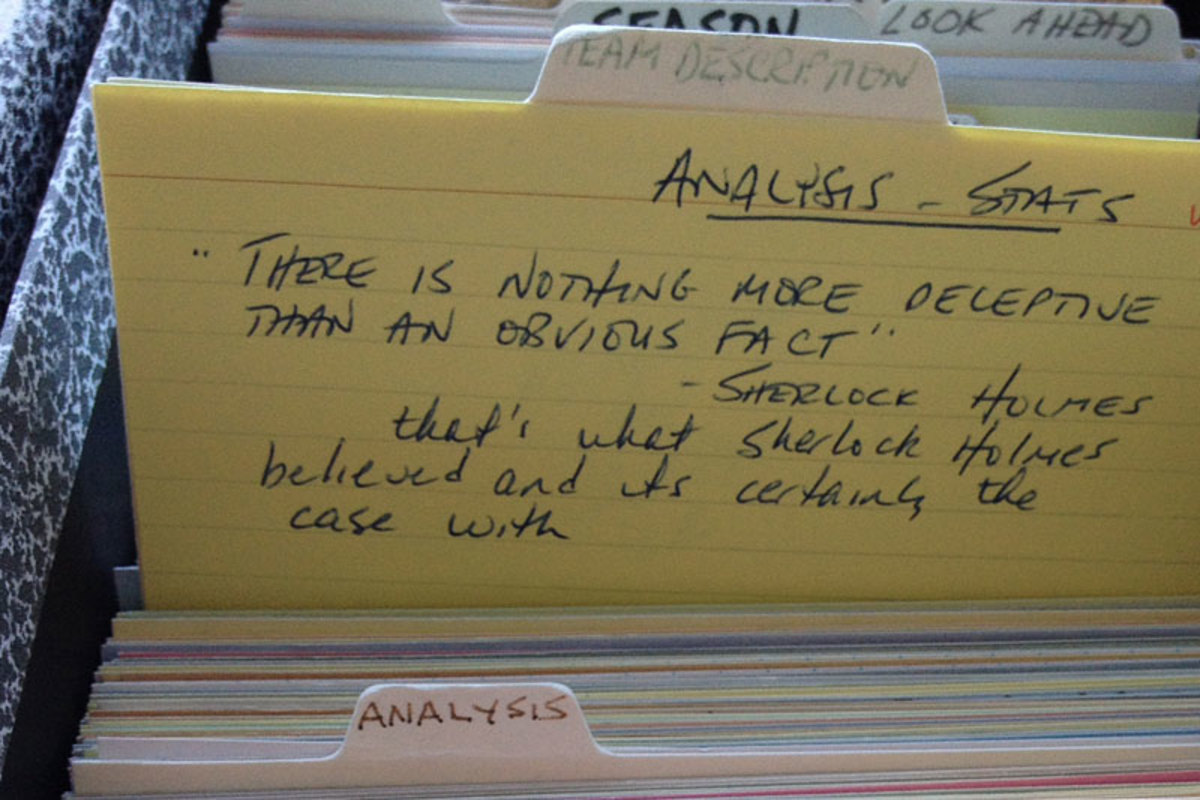 SEASON
LOOK AHEAD
TEAM DESCRIPTION
ANALYSIS - STATS
"THERE IS NOTHING MORE DECEPTIVE
THAN AN OBVIOUS FACT"
- SHERLOCK HOLMES
that's what Sherlock Holmes
believed and its certainly the
case with
ANALYSIS